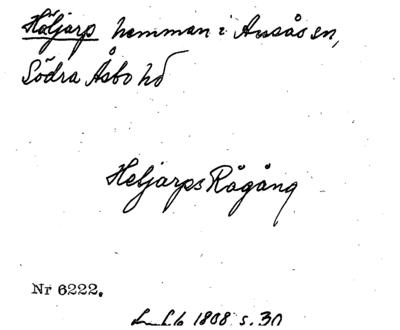 Höljarp hemman i Ausås sn,
Södra Åsbo hd
Heljarps Rågång
Nr 6222.
1808 s. 30